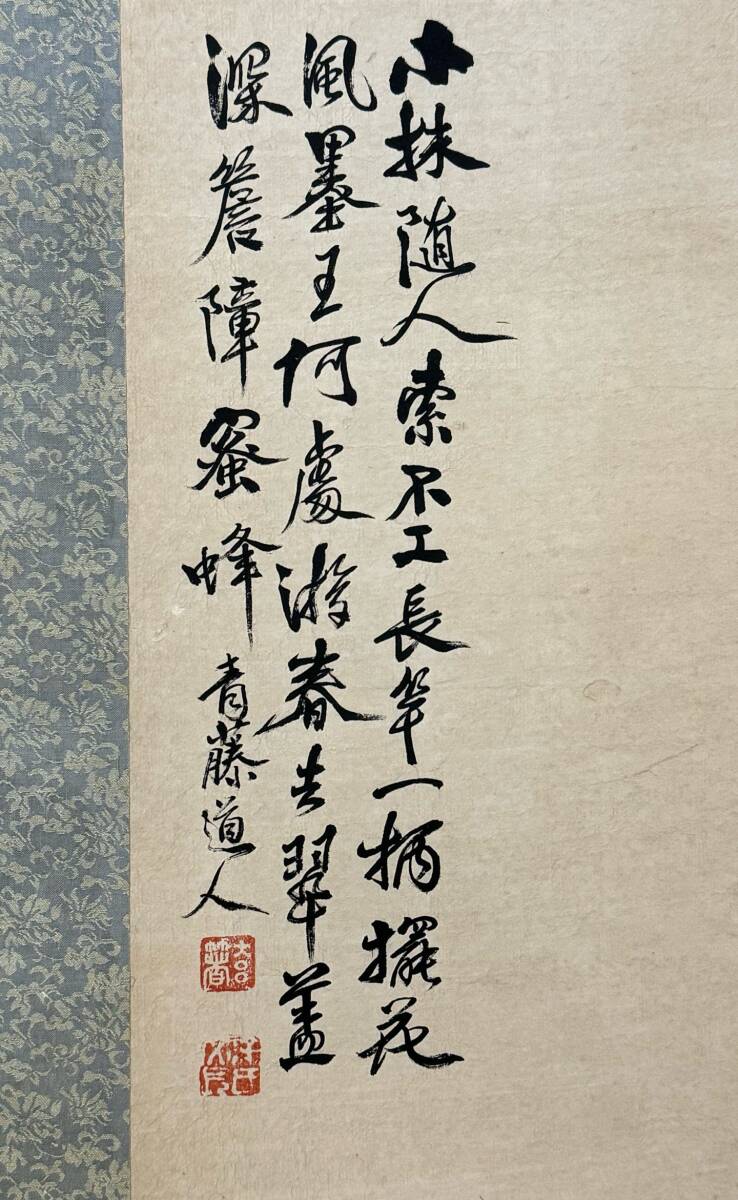 小株隨人索不工長竿一柄擺花
風墨王何處游春去翠蓋
深簷障蜜蜂青藤道人